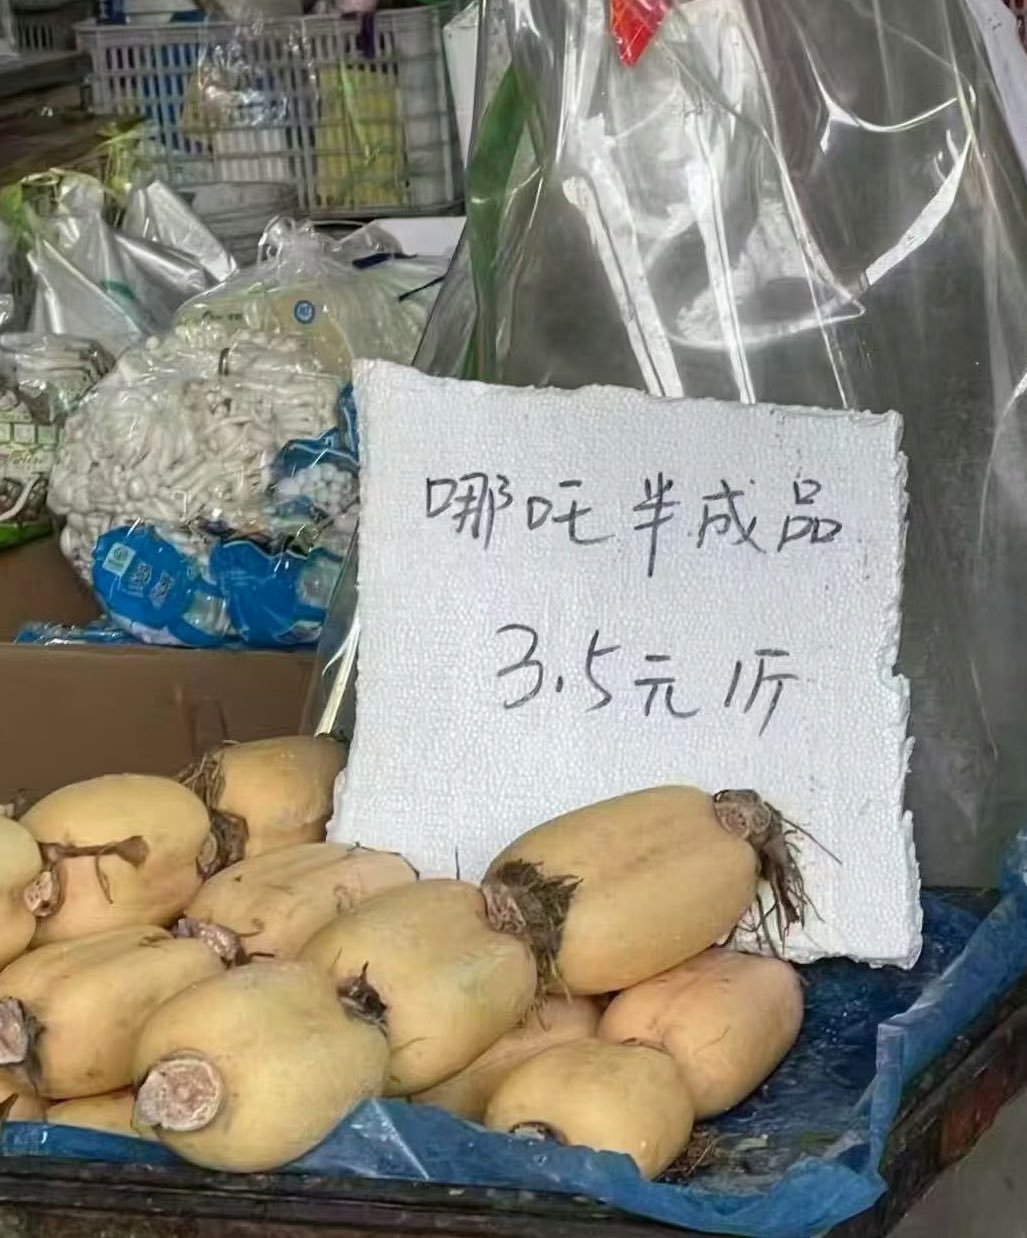 哪吒半成品
3.5元 1斤